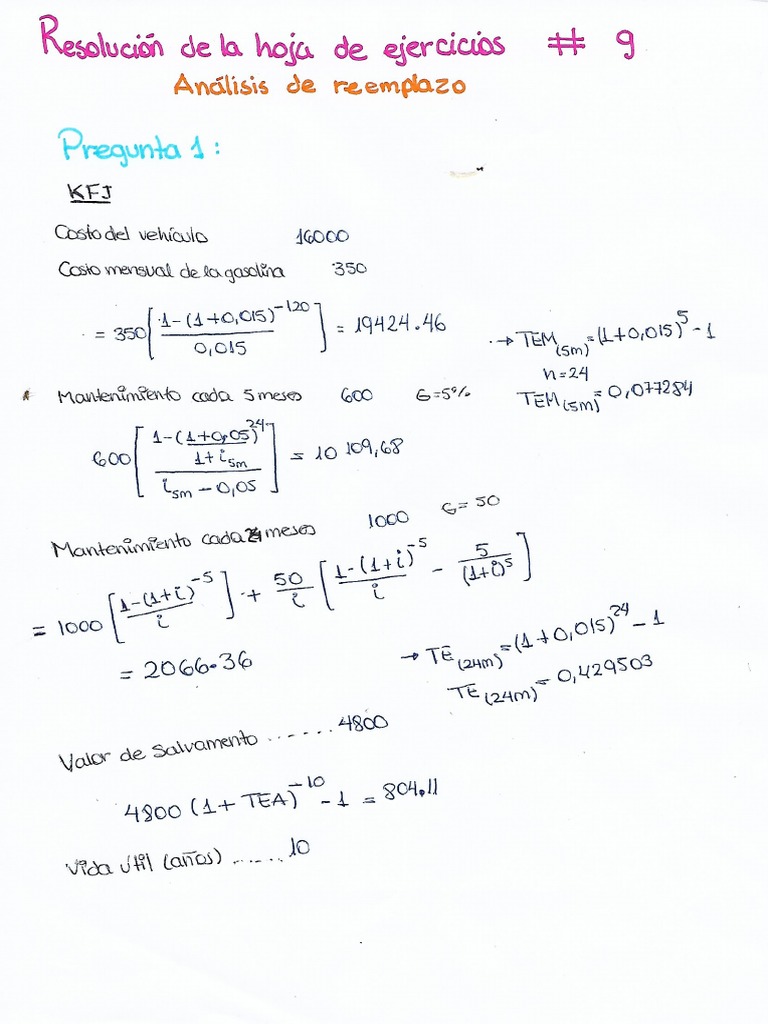 Resolución de la hoja de ejercicios # 9
Análisis de reemplazo
Pregunta 1:
KFJ
Costo del vehículo 16000
Costo mensual de la gasolina 350
= 350[(1-(1+0,015)^-120)/0,015] = 19424.46
→ TEM(5m)=(1+0,015)^5 - 1
n=24
TEM(5m)=0,077284
Mantenimiento cada 5 meses 600 G=5%
600[(1-((1+0,05)/(1+i5m))^24)/(i5m - 0,05)] = 10 109,68
Mantenimiento cada 24 meses 1000 G=50
= 1000[(1-(1+i)^-5)/i] + 50/i[(1-(1+i)^-5)/i - 5/(1+i)^5]
= 2066.36
→ TE(24m)=(1+0,015)^24 - 1
TE(24m)=0,429503
Valor de salvamento ...... 4800
4800 (1 + TEA)^-10 - 1 = 804,11
Vida útil (años) ...... 10